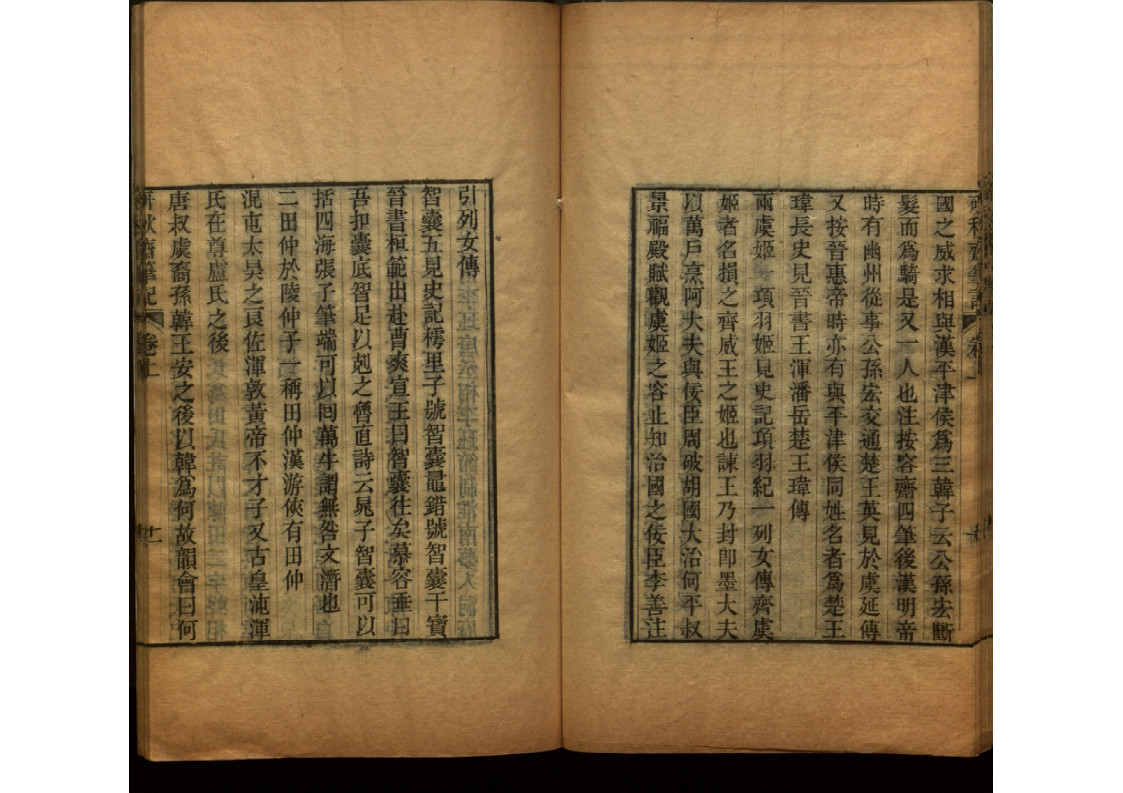 國之威求相與漢平津侯爲三韓子云公孫宏斷
髮而爲騎是又一人也注按容齋四筆後漢明帝
時有幽州從事公孫宏交通楚王英見於虞延傳
又按晉惠帝時亦有與平津侯同姓名者爲楚王
瑋長史見晉書王渾潘岳楚王瑋傳
兩虞姬一項羽姬見史記項羽紀一列女傳齊虞
姬者名損之齊威王之姬也諫王乃封卽墨大夫
以萬戸烹阿大夫與佞臣周破胡國大治何平叔
景福殿賦觀虞姬之容止知治國之佞臣李善注
引列女傳
智囊五見史記樗里子號智囊鼂錯號智囊干寶
晉書桓範出赴曹爽宣王曰智囊往矣慕容垂曰
吾扣囊底智足以剋之魯直詩云晁子智囊可以
括四海張子筆端可以回萬牛謂無咎文潛也
二田仲於陵仲子一稱田仲漢游俠有田仲
混屯太昊之良佐渾敦黃帝不才子又古皇沌渾
氏在尊盧氏之後
唐叔虞裔孫韓王安之後以韓爲何故韻會曰何
齋筆記 卷上 十一